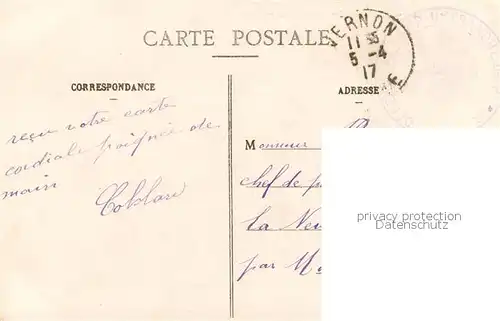 CARTE POSTALE
VERNON
11 35
5 -4
17
E
CORRESPONDANCE
ADRESSE
reçu votre carte
cordiale poignée de
main
Monsieur
chef de
la Neu
par
privacy protection
Datenschutz